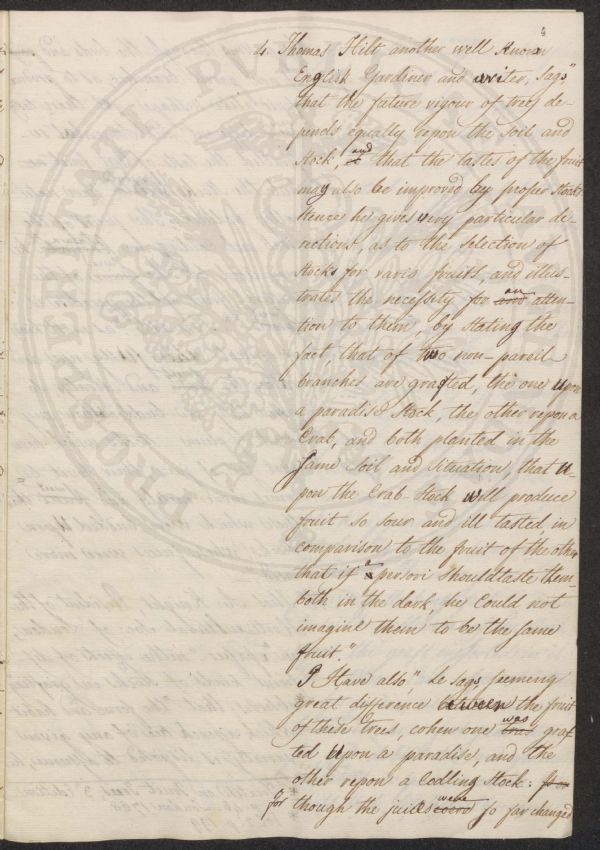 4
4. Thomas Hilt another well known
English Gardiner and writer, says"
that the future vigour of trees de-
pends equally upon the soil and
stock, and that the tastes of the fruit
may also be improved by proper stocks
hence he gives very particular di-
rections, as to the selection of
stocks for varis fruits, and illus-
trates the necessity for an atten-
tion to them, by stating the
fact, that of two non-pareil
branches are grafted, the one upon
a paradise stock, the other upon a
Crab, and both planted in the
same soil and situation, that u-
pon the Crab-stock will produce
fruit so sour and ill tasted in
comparison to the fruit of the other
that if a person should taste them
both in the dark, he could not
imagine them to be the same
fruit."
I Have also" he says seemeng
great difference between the fruit
of these trees, when one was graf
ted upon a paradise, and the
other upon a Codling stock:
for though the juices were so far changed